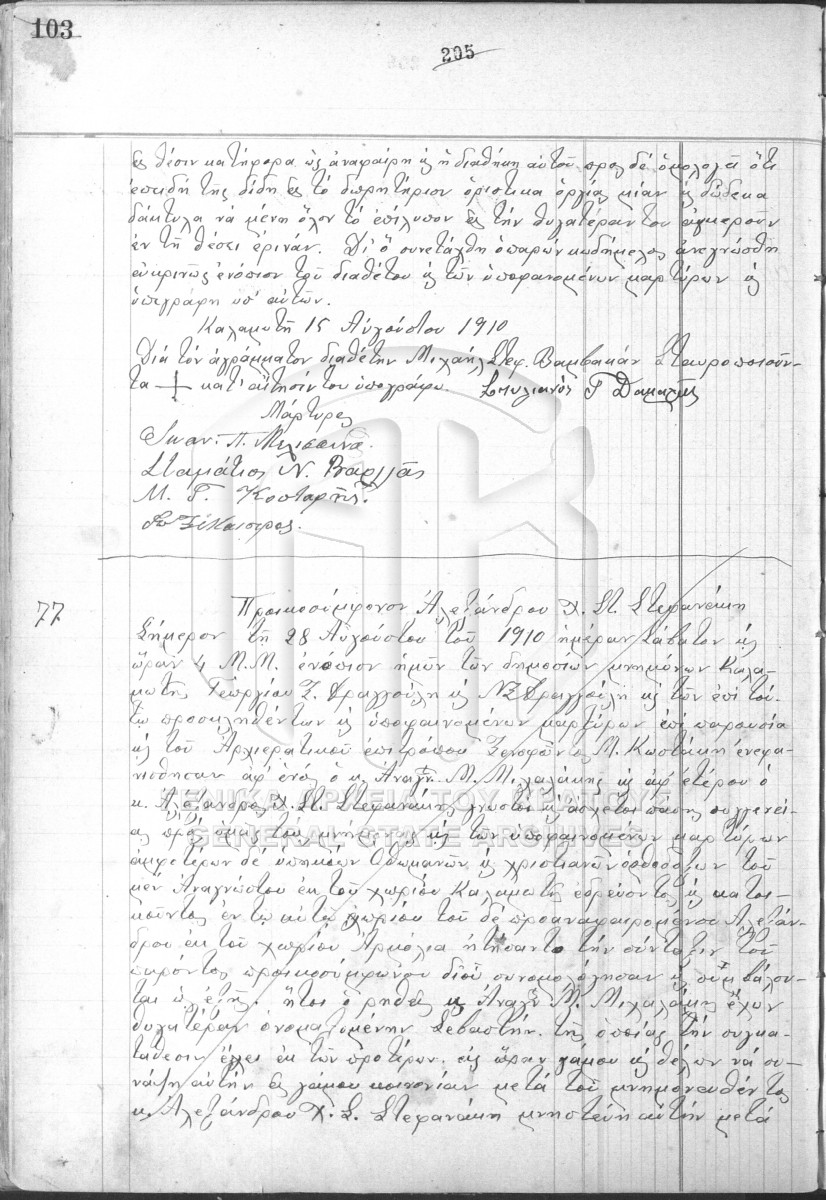 103
205
εἰς θέσιν κατήφορα ὡς ἀναφαίρη κ ἡ διαθήκη αὐτοῦ προς δέ ὁμολογεῖ ὅτι
ἐπειδή τῆς δίδη εἰς τό δωρητήριον ὁριστικα ὀργιάς μίαν κ δώδεκα
δάκτυλα νά μένη ὅλον τό ἐπίλυπον εἰς τήν θυγατέραν του
ἐν τῇ θέσει ἐρινάν. Δι' ὅ συνετάχθη ὁ παρών κωδήμελος ἀνεγνώσθη
εὐκρινῶς ἐνόπιον τοῦ διαθέτου κ τῶν ὑποφαινομένων μαρτύρων κ
ὑπεγράφη ὑπ' αὐτῶν.
Καλαμωτῆ 15 Αὐγούστου 1910
Διά τόν ἀγράμματον διαθέτην Μιχαήλ Στεφ. Βαμβακάν Σταυροποιοῦν-
τα κατ' αἴτησίν του ὑπογράφω Στυλιανός Γ Δαμαλᾶς
Μάρτυρες
Ἰωαν. Π. Μελισσινός
Σταμάτιος Ν. Βαρλᾶς
Μ. Γ. Κοσταρῆς.
77
Προικοσύμφονον Ἀλεξάνδρου Χ. Στ. Στεφανάκη
Σήμερον τῇ 28 Αὐγούστου τοῦ 1910 ἡμέραν Σάβατον κ
ὥραν 4 Μ.Μ. ἐνόπιον ἡμῶν τῶν δημοσίων μνημόνων Καλα-
μωτῆς Γεωργίου Ζ. Φραγγούλη κ Ν Ζ Φραγγούλη κ τῶν ἐπί τού-
τῳ προσκληθέντων κ ὑποφαινομένων μαρτύρων ἐπί παρουσία
κ τοῦ Ἀρχιερατικοῦ ἐπιτρόπου Ξενοφῶντος Μ. Κωστάκη ἐνεφα-
νίσθησαν ἀφ' ἑνός ὁ κ Ἀναγν. Μ. Μιχαλάκης κ ἀφ' ἑτέρου ὁ
κ. Ἀλέξανδρος Χ. Στ. Στεφανάκης γνωστοί κ ἄσχετοι πάσης συγγενεί-
ας πρός ἡμᾶς τούς μνήμονας κ τῶν ὑποφαινομένων μαρτύρων
ἀμφοτέρων δέ ὑπηκόων Ὀθωμανῶν κ χριστιανῶν ὀρθοδόξων τοῦ
μέν Ἀναγνώστου ἐκ τοῦ χωρίου Καλαμωτῆς ἑδρεύοντος κ κατοι-
κοῦντος ἐν τῳ αὐτῳ χωρίου τοῦ δέ προαναφαιρομένου Ἀλεξάν-
δρου ἐκ τοῦ χωρίου Ἀρμόλια ἠτήσαντο τήν σύνταξιν τοῦ
παρόντος προικοσυμφώνου διοῦ συνομολόγησαν κ συμβάλου-
ται ὡς ἑξῆς. ἤτοι ὁ ρηθείς κ Ἀναγν. Μ. Μιχαλάκης ἔχων
θυγατέραν ὀνοματομένην Σεβαστήν. τῆς ὁποίας τήν συγκα-
τάθεσιν ἔχει ἐκ τῶν προτέρων. εἰς ὥραν γάμου κ θέλων νά συ-
νάψη αὐτήν εἰς γάμου κοινονίαν μετά τοῦ μνημονευθέντος
κ. Ἀλεξάνδρου Χ. Σ. Στεφανάκη μνηστεύη αὐτήν μετά
ΓΕΝΙΚΑ ΑΡΧΕΙΑ ΤΟΥ ΚΡΑΤΟΥΣ
GENERAL STATE ARCHIVES